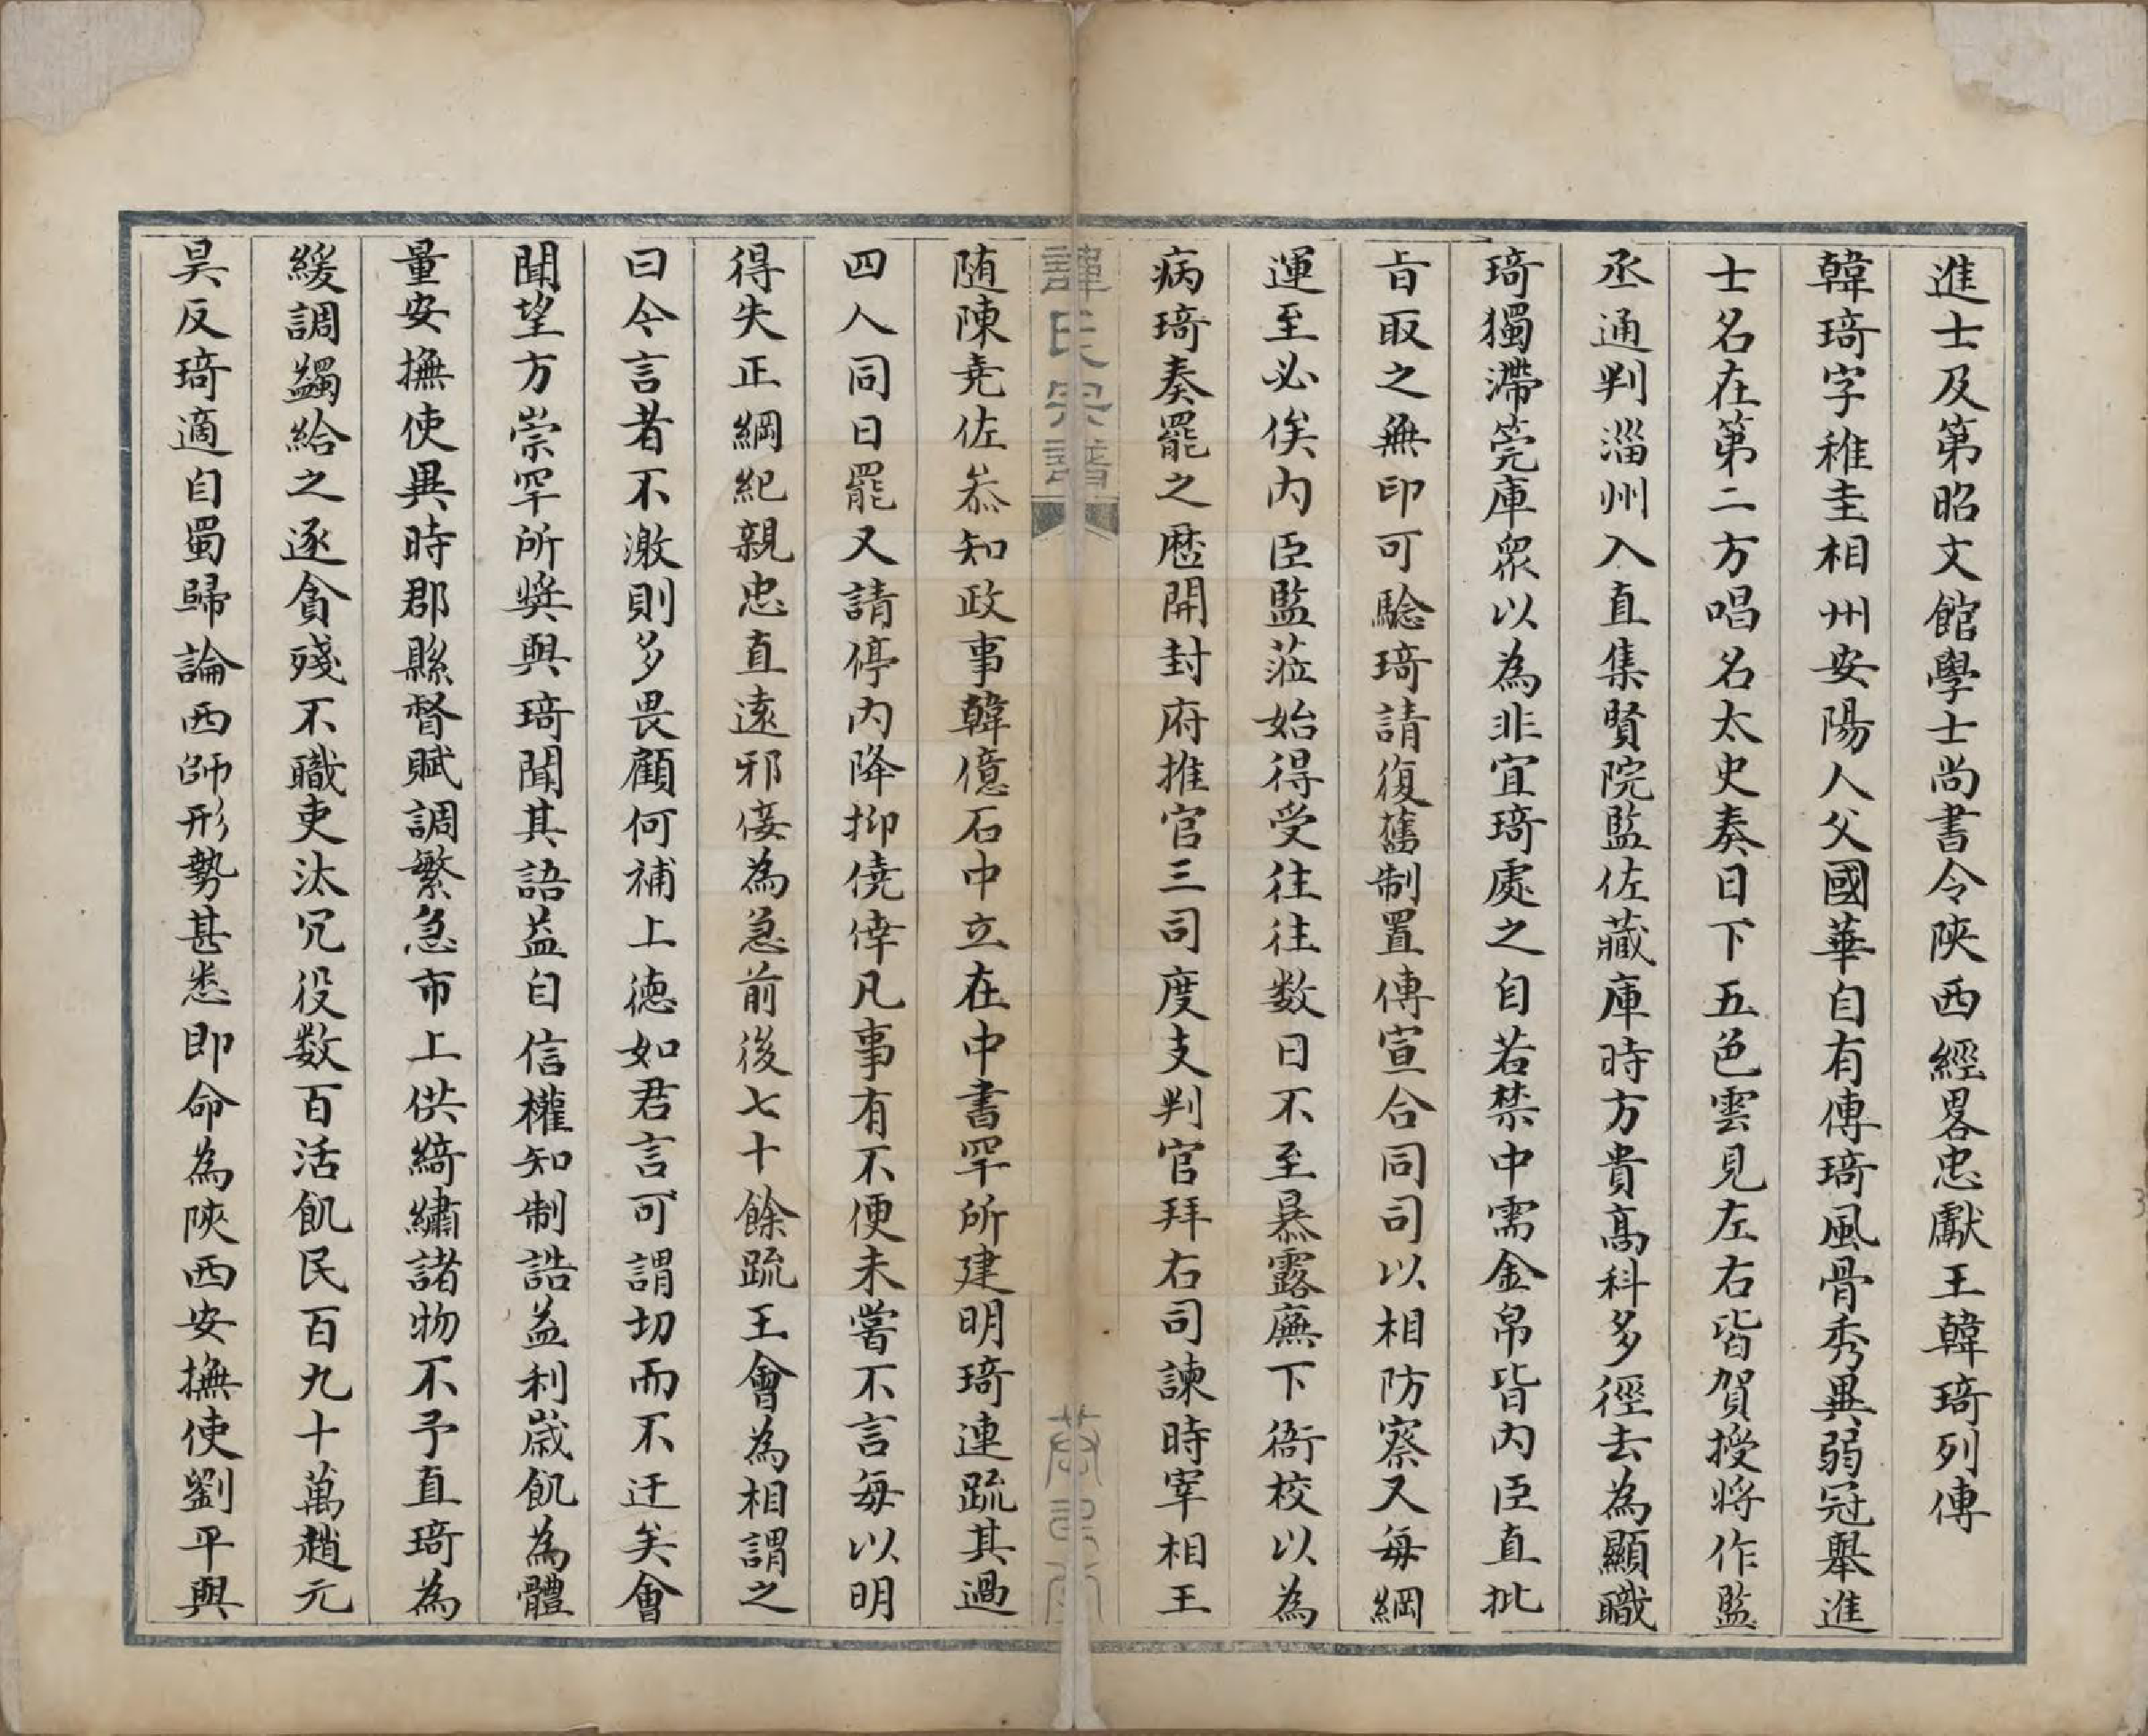 進士及第昭文館學士尚書令陝西經畧忠獻王韓琦列傳
韓琦字稚圭相州安陽人父國華自有傳琦風骨秀異弱冠舉進
士名在第二方唱名太史奏日下五色雲見左右皆賀授將作監
丞通判淄州入直集賢院監佐藏庫時方貴高科多徑去為顯職
琦獨滯筦庫眾以為非宜琦處之自若禁中需金帛皆內臣直批
旨取之無印可驗琦請復舊制置傳宣合同司以相防察又每綱
運至必俟內臣監蒞始得受往往数日不至暴露廡下衙校以為
病琦奏罷之歷開封府推官三司度支判官拜右司諫時宰相王
韓氏宗譜
隨陳堯佐叅知政事韓億石中立在中書罕所建明琦連疏其過
四人同日罷又請停內降抑僥倖凡事有不便未嘗不言每以明
得失正綱紀親忠直遠邪佞為急前後七十餘疏王會為相謂之
曰今言者不激則多畏顧何補上德如君言可謂切而不迂矣會
聞望方崇罕所獎與琦聞其語益自信權知制誥益利歲飢為體
量安撫使異時郡縣督賦調繁急市上供綺繡諸物不予直琦為
緩調蠲給之逐貪殘不職吏汰冗役数百活飢民百九十萬趙元
昊反琦適自蜀歸論西師形勢甚悉即命為陝西安撫使劉平與